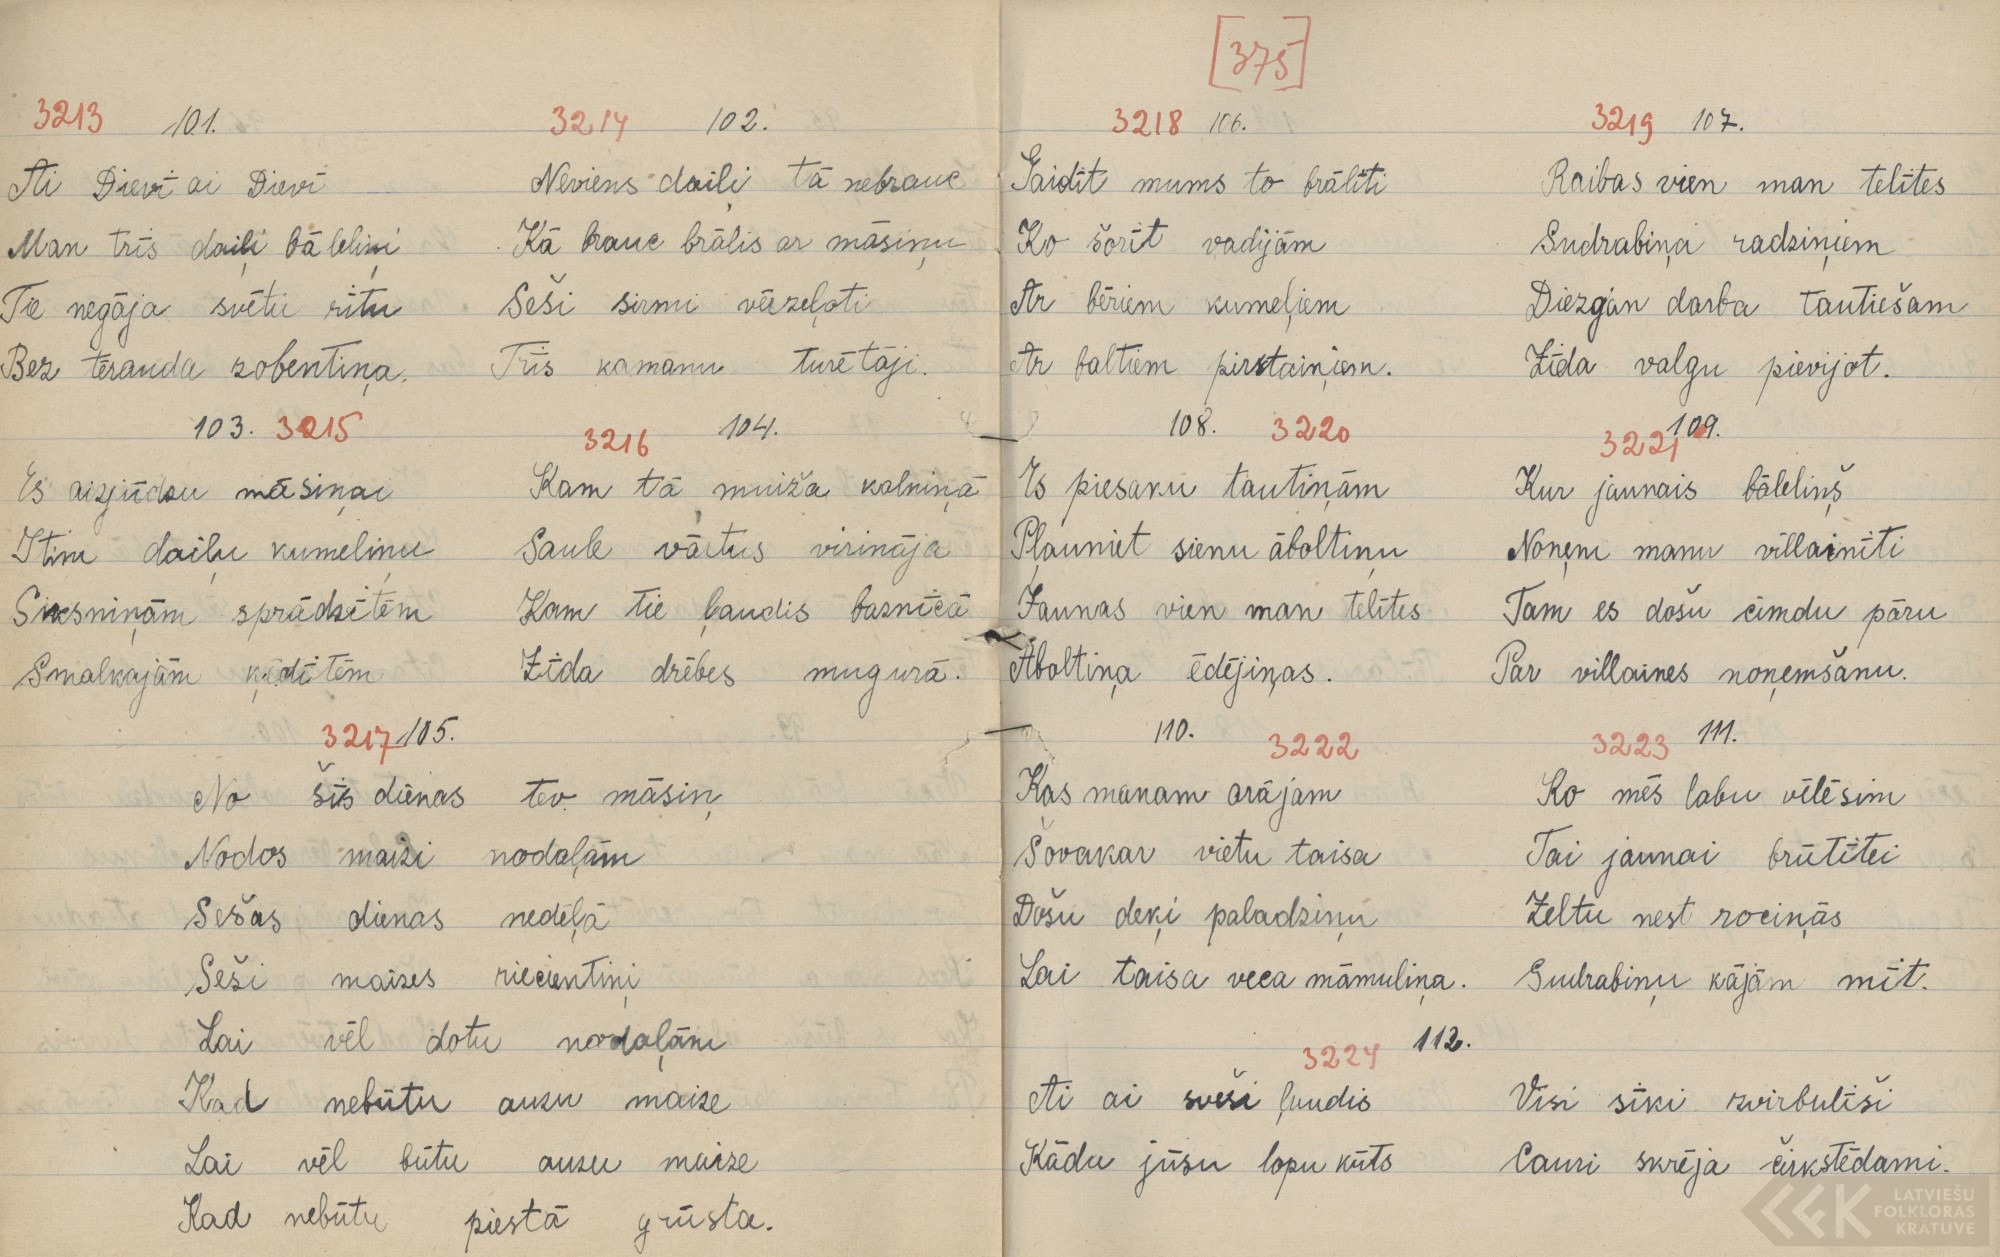 [375]
3213 101.
Ai Dievi ai Dievi
Man trīs daiļi bāleliņi
Tie negāja svētu rītu
Bez tērauda zobentiņa.
3214 102.
Neviens daiļi tā nebrauc
Kā brauc brālis ar māsiņu
Seši sirmi vēzeļoti
Trīs kamanu turētāji.
103. 3215
Es aizjūdzu māsiņai
Itin daiļu kumeliņu
Siksniņām sprādzītēm
Smalkajām ķēdītēm
3216 104.
Kam tā muiža kalniņā
Saule vārtus virināja
Kam tie ļaudis baznīcā
Zīda drēbes mugurā.
3217 105.
No šīs dienas tev māsiņ
Nodos maizi nodaļām
Sešas dienas nedēļā
Seši maizes riecientiņi
Lai vēl dotu nodaļām
Kad nebūtu auzu maize
Lai vēl būtu auzu maize
Kad nebūtu piestā grūsta.
3218 106.
Gaidīt mums to brālīti
Ko šorīt vadījām
Ar bēriem kumeļiem
Ar baltiem pirkstaiņiem.
3219 107.
Raibas vien man telītes
Sudrabiņa radziņiem
Diezgan darba tautiešam
Zīda valgu pievijot.
108. 3220
Es piesaku tautiņām
Pļauniet sienu āboltiņu
Jaunas vien man telītes
Āboltiņa ēdējiņas.
3221 109.
Kur jaunais bāleliņš
Noņem manu villainīti
Tam es došu cimdu pāru
Par villaines noņemšanu.
110. 3222
Kas manam arājam
Šovakar vietu taisa
Došu deķi paladziņu
Lai taisa veca māmuliņa.
3223 111.
Ko mēs labu vēlēsim
Tai jaunai brūtītei
Zeltu nest rociņās
Sudrabiņu kājām mīt.
3224 112.
Ai ai sveši ļaudis
Kādu jūsu lopu kūts
Visi sīki zvirbulīši
Cauri skrēja čirkstēdami.
LATVIEŠU
FOLKLORAS
KRĀTUVE